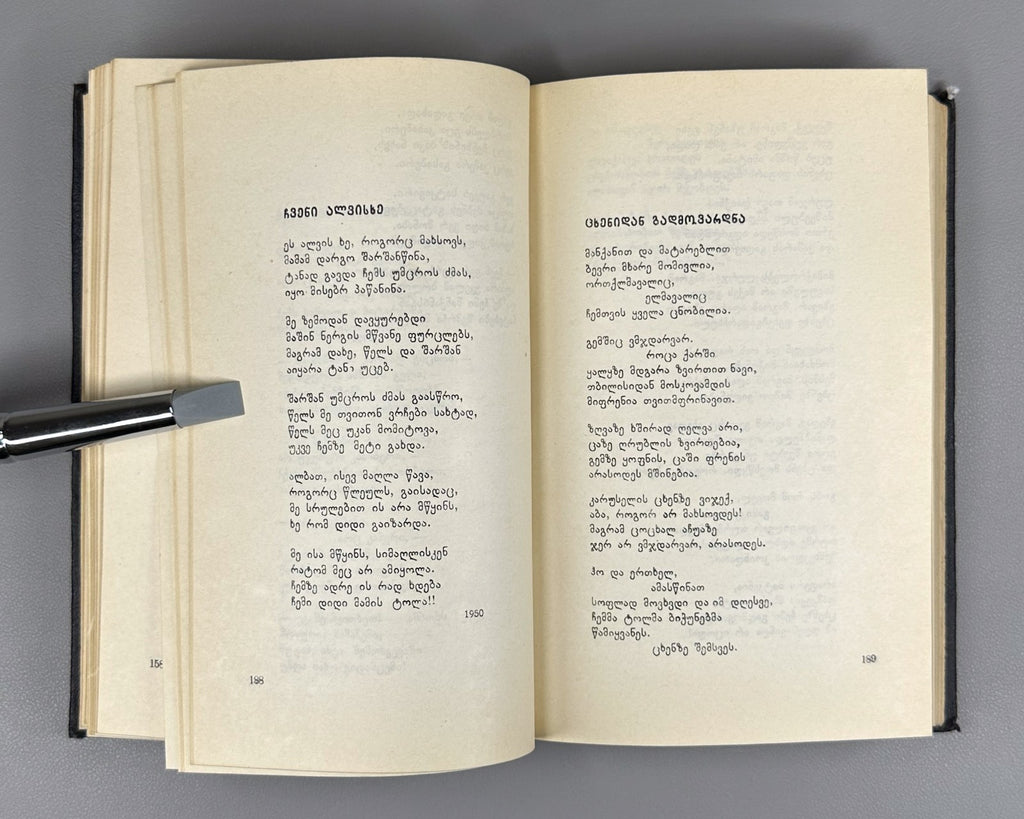 ჩვენი ალვისხე
ეს ალვის ხე, როგორც მახსოვს,
მამამ დარგო შარშანწინა,
ტანად გავდა ჩემს უმცროს ძმას,
იყო მისებრ პაწანინა.
მე ზემოდან დავყურებდი
მაშინ ნერგის მწვანე ფურცლებს,
მაგრამ დახე, წელს და შარშან
აიყარა ტანი უცებ.
შარშან უმცროს ძმას გაასწრო,
წელს მე თვითონ ვრჩები სახტად,
წელს მეც უკან მომიტოვა,
უკვე ჩემზე მეტი გახდა.
ალბათ, ისევ მაღლა წავა,
როგორც წლეულს, გაისადაც,
მე სრულებით ის არა მწყინს,
ხე რომ დიდი გაიზარდა.
მე ისა მწყინს, სიმაღლისკენ
რატომ მეც არ ამიყოლა.
ჩემზე ადრე ის რად ხდება
ჩემი დიდი მამის ტოლა!!
1950
158
188
ცხენიდან გადმოვარდნა
მანქანით და მატარებლით
ბევრი მხარე მომივლია,
ორთქლმავალიც,
ელმავალიც
ჩემთვის ყველა ცნობილია.
გემშიც ვმჯდარვარ.
როცა ქარში
ყალყზე მდგარა ზვირთით ნავი,
თბილისიდან მოსკოვამდის
მიფრენია თვითმფრინავით.
ზღვაზე ხშირად ღელვა არი,
ცაზე ღრუბლის ზვირთებია,
გემზე ყოფნის, ცაში ფრენის
არასოდეს მშინებია.
კარუსელის ცხენზე ვიჯექ,
აბა, როგორ არ მახსოვდეს!
მაგრამ ცოცხალ აჩუაზე
ჯერ არ ვმჯდარვარ, არასოდეს.
ჰო და ერთხელ,
ამასწინათ
სოფლად მოვხვდი და იმ დღესვე,
ჩემმა ტოლმა ბიჭუნებმა
წამიყვანეს.
ცხენზე შემსვეს.
189